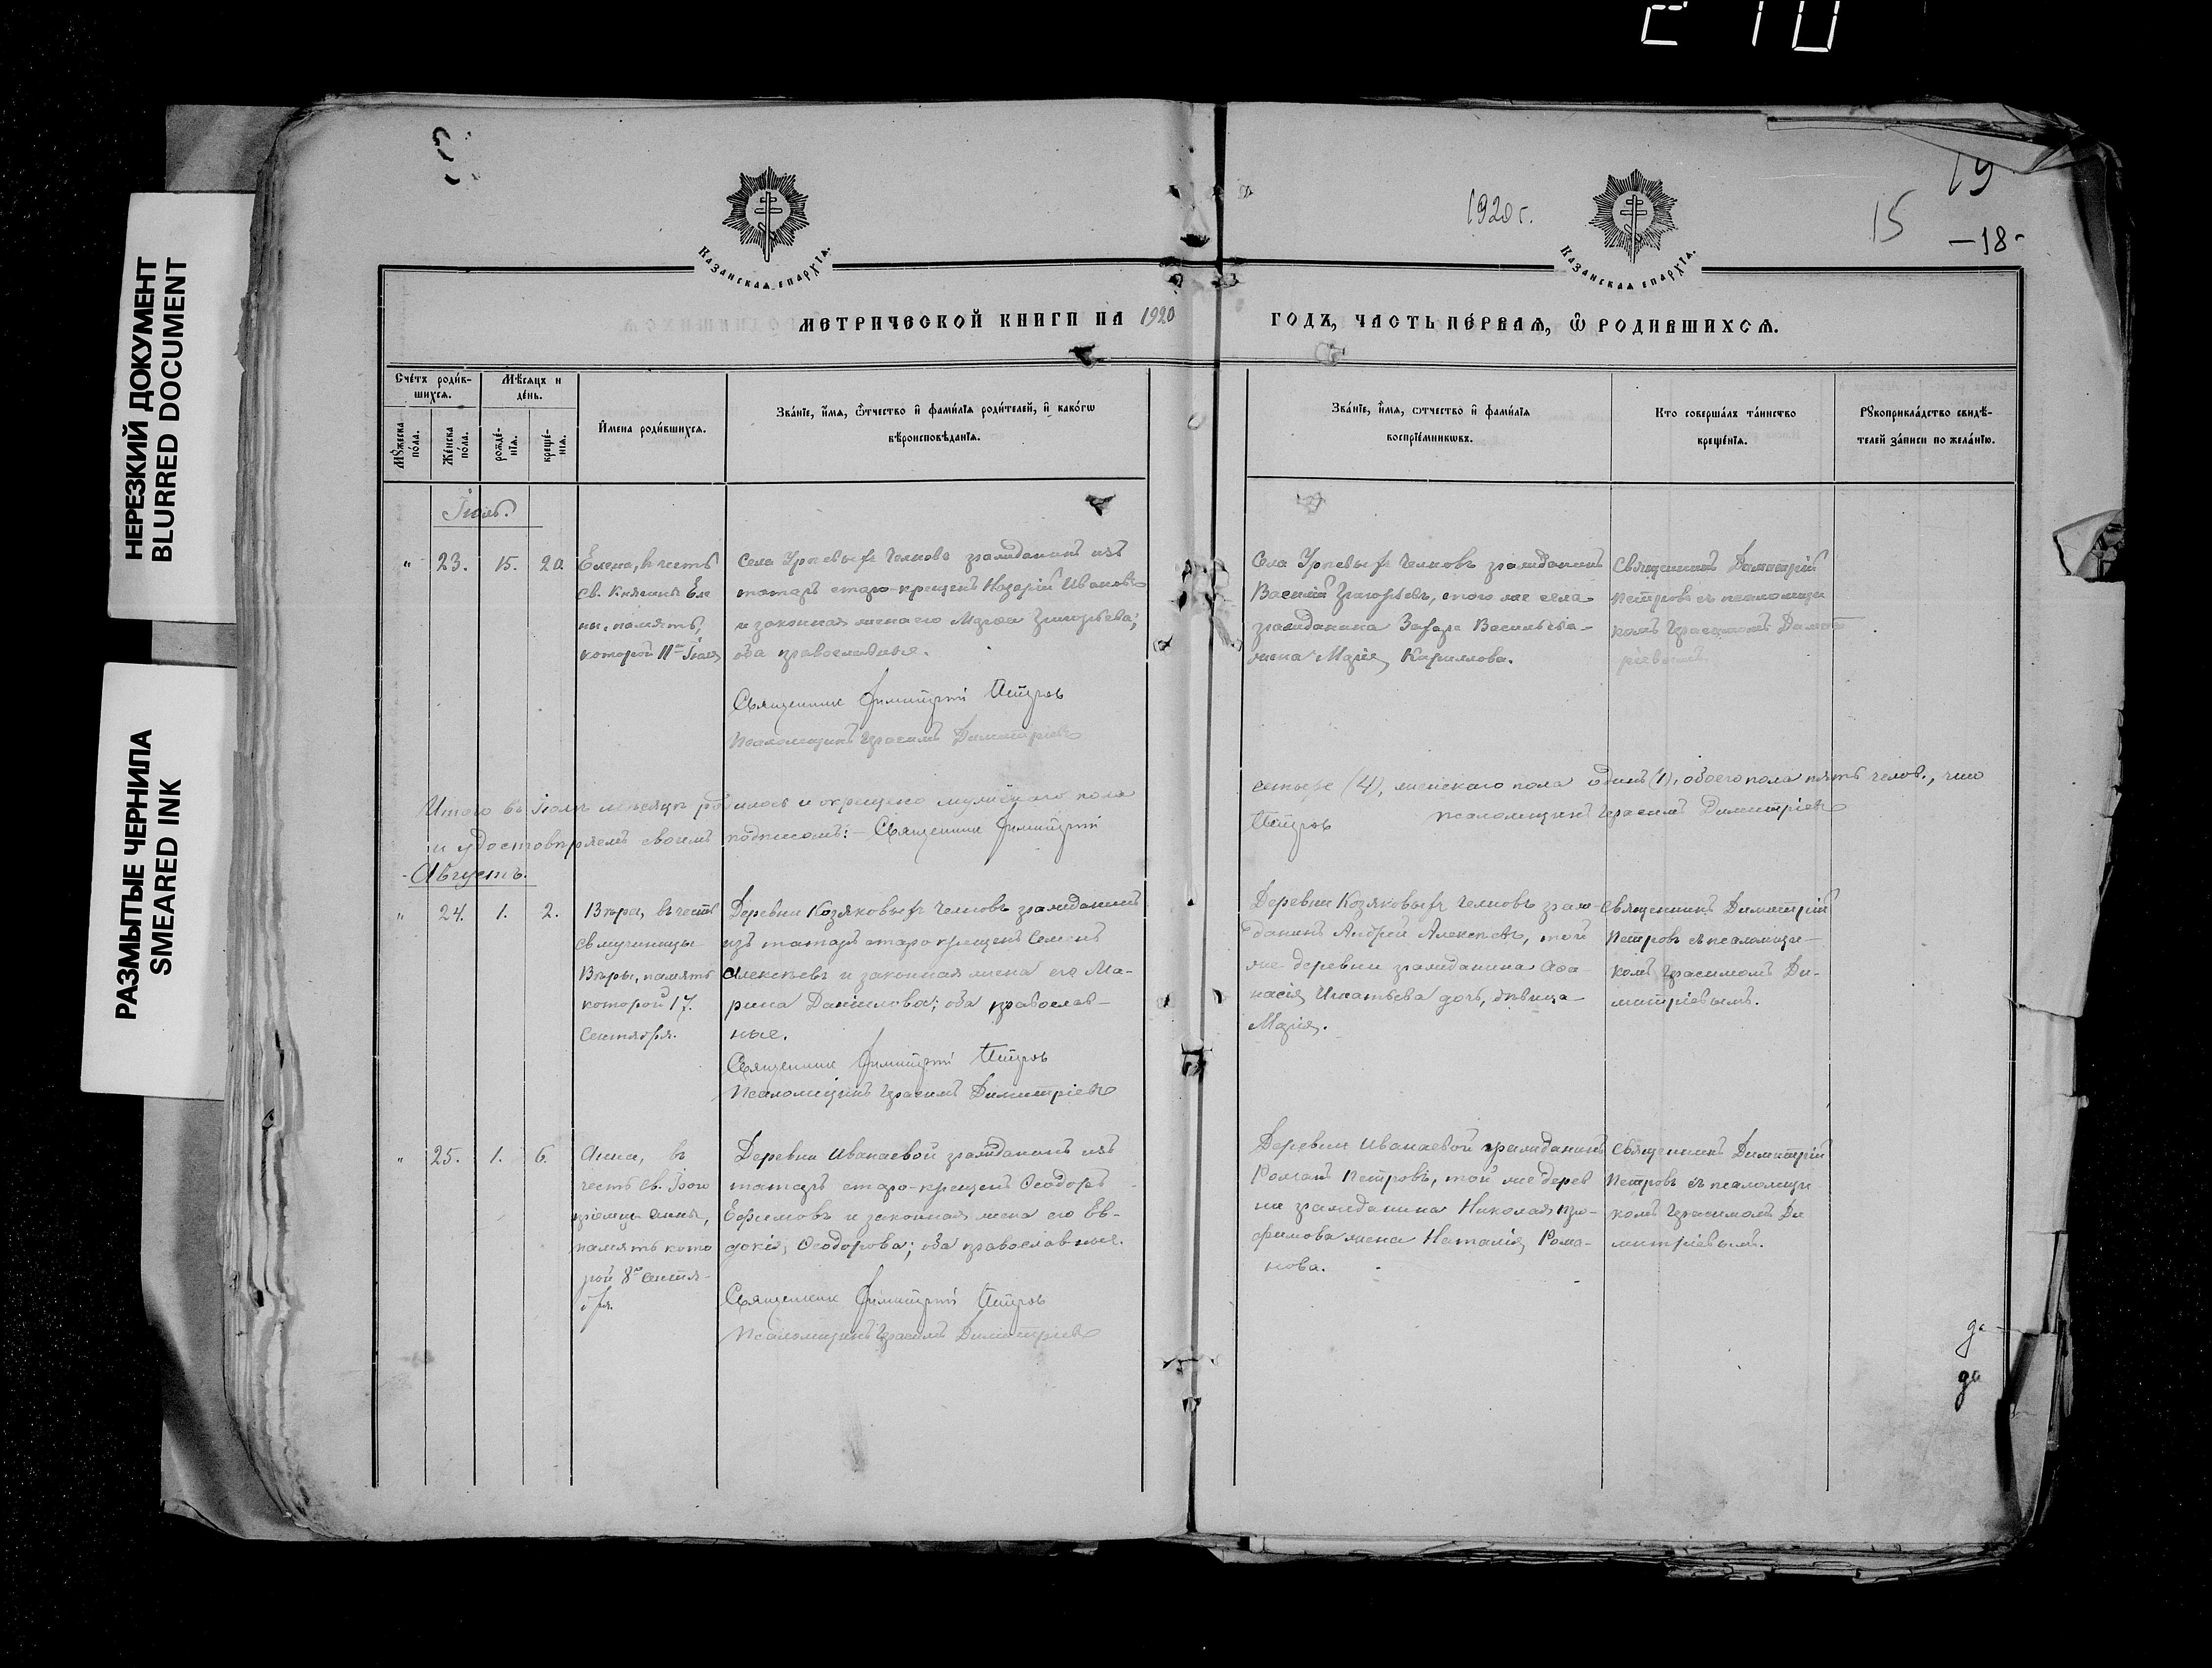 210
НЕРЕЗКИЙ ДОКУМЕНТ
BLURRED DOCUMENT
РАЗМЫТЫЕ ЧЕРНИЛА
SMEARED INK
1920 г.
19
15
-18-
КАЗАНСКАЯ ЕПАРХІЯ.
КАЗАНСКАЯ ЕПАРХІЯ.
МЕТРИЧЕСКОЙ КНИГИ НА 1920 ГОДЪ, ЧАСТЬ ПЕ́РВАЯ, Ѡ РОДИВШИХСЯ.
Сче́тъ роди́в-
шихся.
Мѣ́сяцъ и
де́нь.
Мꙋ́жеска
по́ла.
Же́нска
по́ла.
рожде́-
нїѧ.
креще́-
нїѧ.
И҆мена роди́вшихся.
Зва́нїе, и҆́мѧ, ѻ҆́тчество и҆ фами́лїѧ роди́телей, и҆ како́гѡ
вѣроисповѣ́данїѧ.
Зва́нїе, и҆́мѧ, ѻ҆́тчество и҆ фами́лїѧ
воспрїе́мникѡвъ.
Кто соверша́лъ та́инство
креще́нїѧ.
Рꙋкоприкла́дство свидѣ́-
телей за́писи по жела́нїю.
Іюль.
" 23. 15. 20.
Елена, въ честь
св. Княгини Еле
ны, память,
которой 11го Іюля
Села Урѣевыхъ Челновъ гражданинъ изъ
татаръ старо-крещенъ Назарій Ивановъ
и законная жена его Марѳа Григорьева;
оба православные.
Священникъ Димитрій Петров
Псаломщикъ Герасимъ Димитріевъ
Села Урѣевыхъ Челновъ гражданинъ
Василій Григорьевъ, того же села
гражданина Захара Васильева
жена Марія Кириллова.
Священникъ Димитрій
Петровъ съ псаломщи
комъ Герасимомъ Димит
ріевымъ.
Итого въ Іюлѣ мѣсяцѣ родилось и окрещено мужескаго пола
четыре (4), женскаго пола одинъ (1), обоего пола пять челов., что
и удостовѣряемъ своимъ подписомъ: - Священникъ Димитрій
Петров Псаломщикъ Герасимъ Димитріевъ
Августъ.
" 24. 1. 2.
Вѣра, въ честь
св мученицы
Вѣры, память
которой 17.
Сентября.
Деревни Козяковыхъ Челновъ гражданинъ
изъ татаръ старо крещенъ Семенъ
Алексѣевъ и законная жена его Ма-
рина Даніилова; оба православ-
ные.
Священникъ Димитрій Петров
Псаломщикъ Герасимъ Димитріевъ
Деревни Козяковыхъ Челновъ граж-
данинъ Андрей Алексѣевъ, той
же деревни гражданина Аѳа-
насія Игнатьева дочь, дѣвица
Марія.
Священникъ Димитрій
Петровъ съ псаломщи-
комъ Герасимомъ Ди-
митріевымъ.
" 25. 1. 6.
Анна, въ
честь св. Бого
пріемцы Анны,
память кото
рой 8го Сентя-
бря.
Деревни Иванаевой гражданинъ изъ
татаръ старо-крещенъ Ѳеодоръ
Ефимовъ и законная жена его Ев-
докія, Ѳеодорова; оба православные.
Священникъ Димитрій Петров
Псаломщикъ Герасимъ Димитріевъ
Деревни Иванаевой гражданинъ
Романъ Петровъ, той же дерев
ни гражданина Николая
жена Наталія Рома-
нова.
Священникъ Димитрій
Петровъ съ псаломщи
комъ Герасимомъ Ди
митріевымъ.
да
да